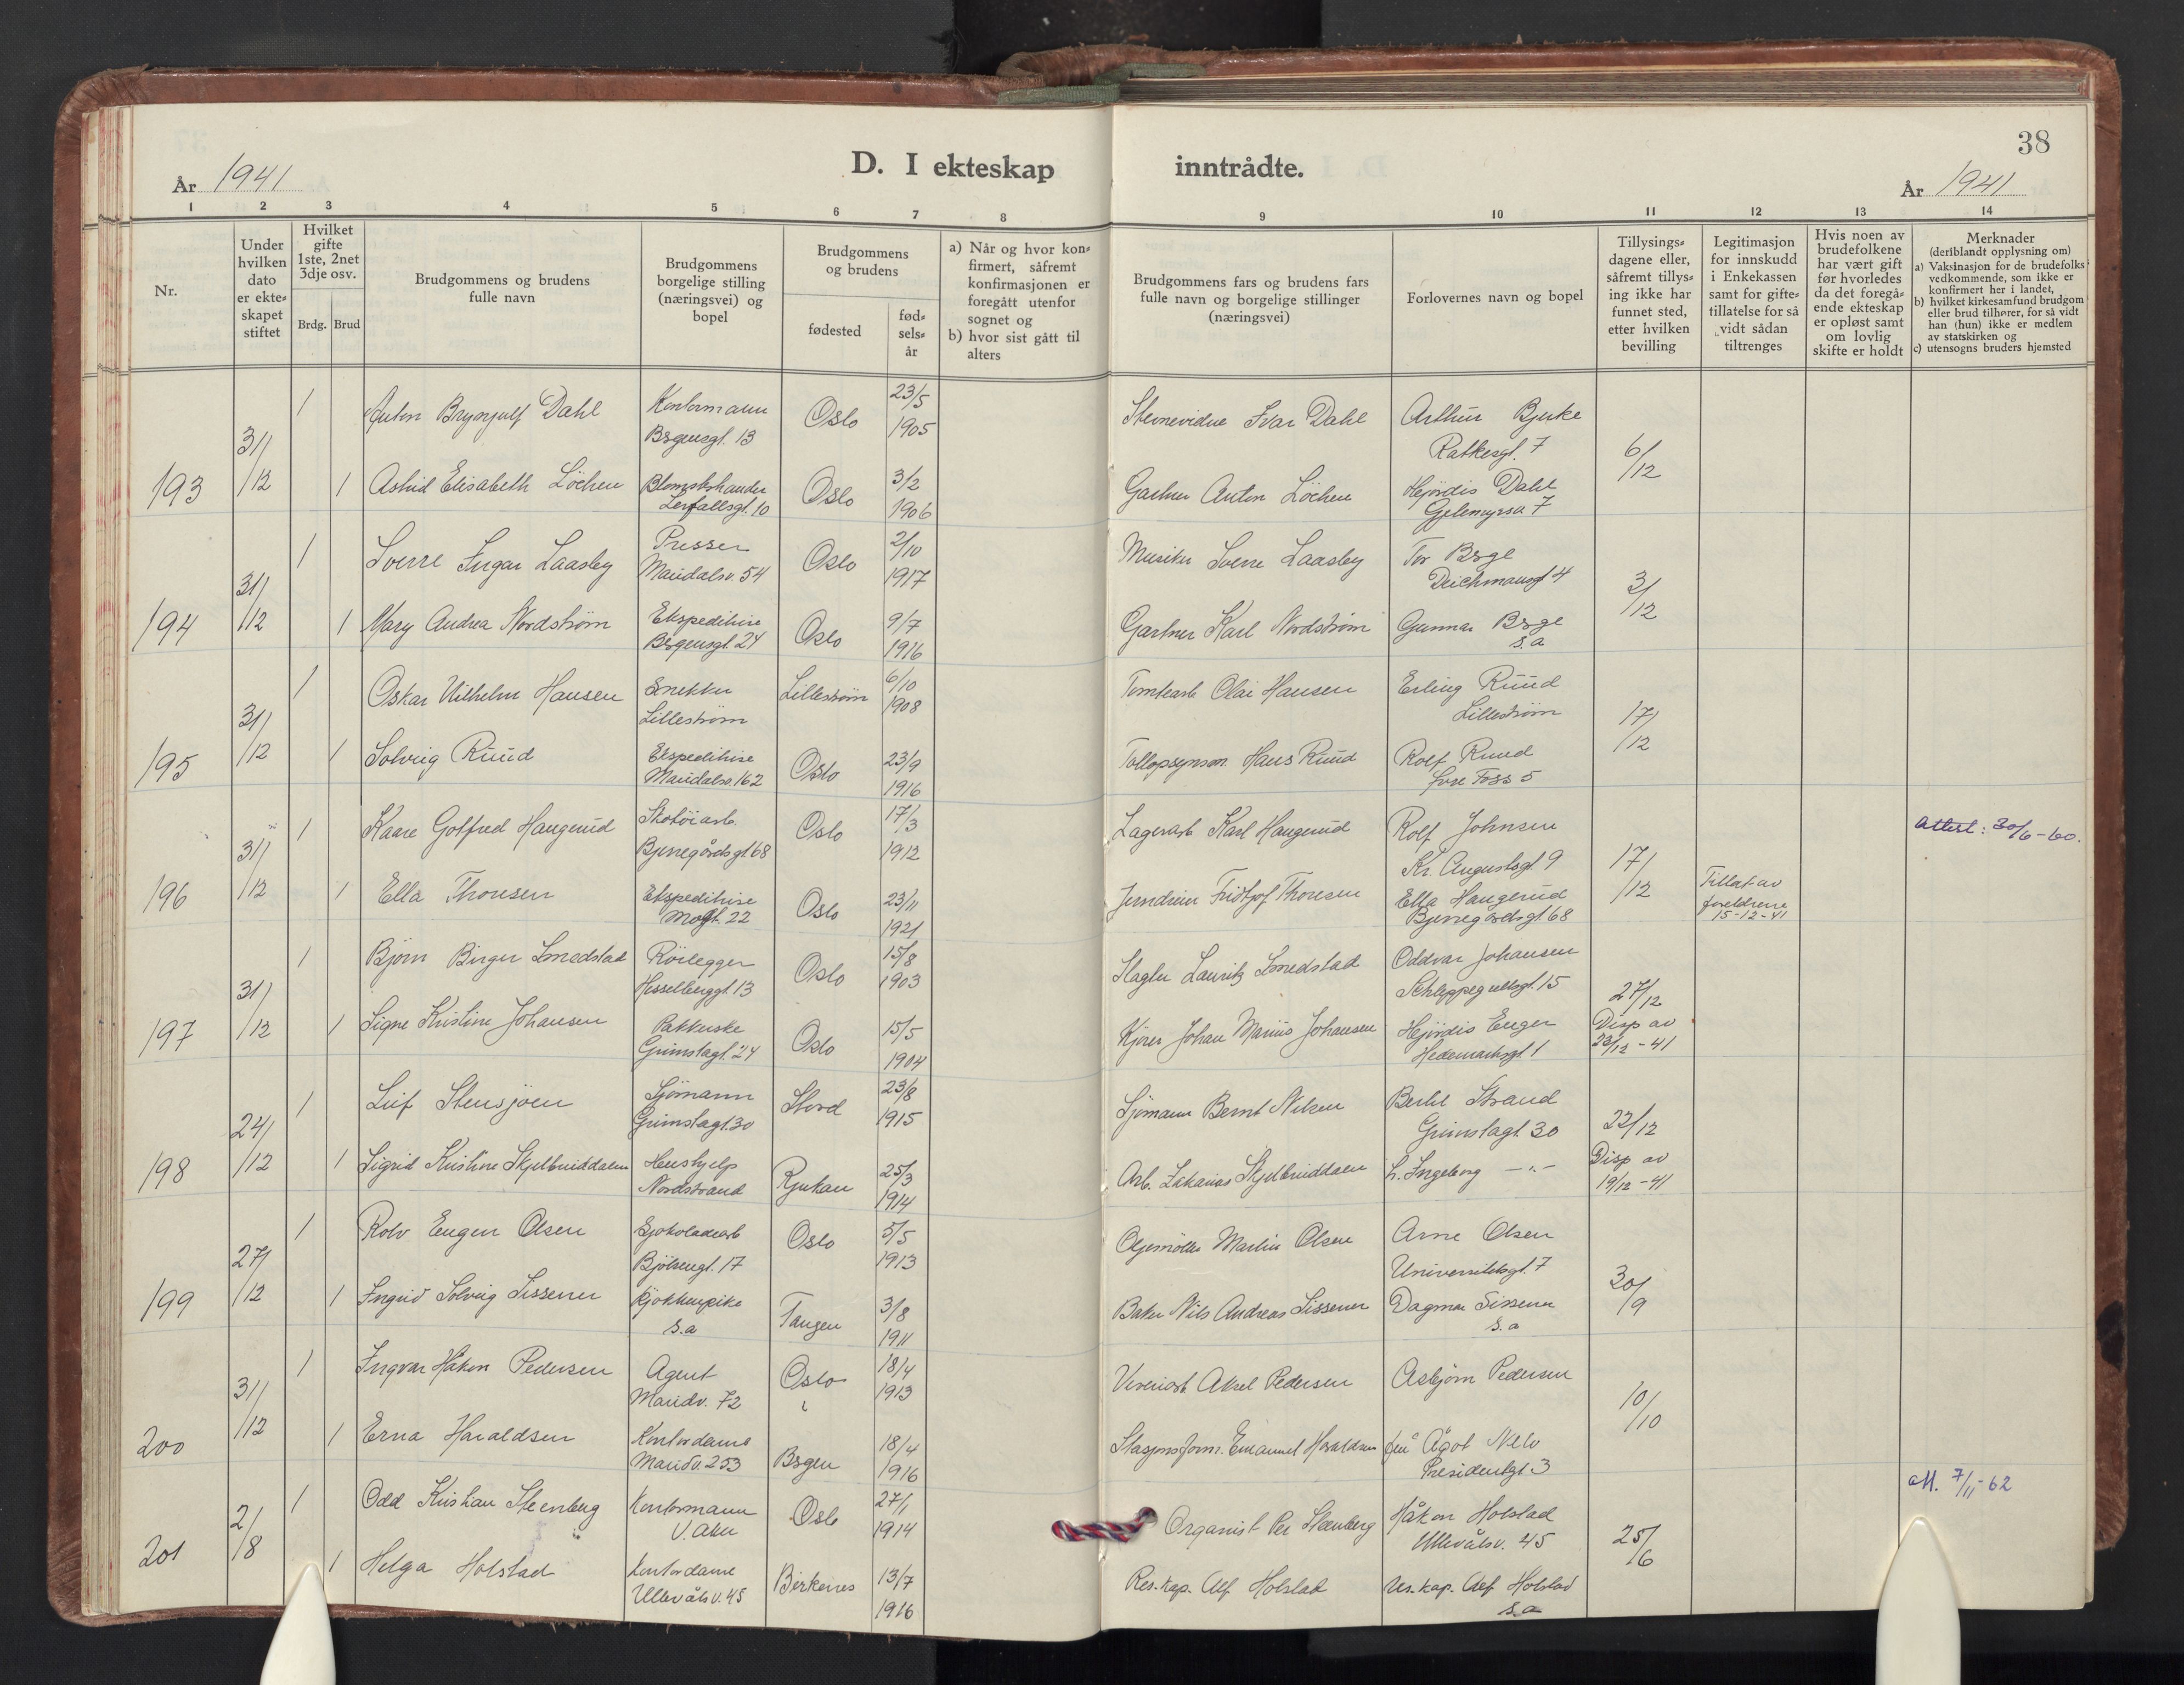 38
År 1941
D. I ekteskap inntrådte.
År 1941
1 2 3 4 5 6 7 8 9 10 11 12 13 14
Nr.
Under hvilken dato er ekte= skapet stiftet
Hvilket gifte 1ste, 2net 3dje osv.
Brdg. Brud
Brudgommens og brudens fulle navn
Brudgommens borgelige stilling (næringsvei) og bopel
Brudgommens og brudens
fødested
fød= sels= år
a) Når og hvor kon= firmert, såfremt konfirmasjonen er foregått utenfor sognet og
b) hvor sist gått til alters
Brudgommens fars og brudens fars fulle navn og borgelige stillinger (næringsvei)
Forlovernes navn og bopel
Tillysings= dagene eller, såfremt tillys= ing ikke har funnet sted, etter hvilken bevilling
Legitimasjon for innskudd i Enkekassen samt for gifte= tillatelse for så vidt sådan tiltrenges
Hvis noen av brudefolkene har vært gift før hvorledes da det foregå= ende ekteskap er opløst samt om lovlig skifte er holdt
Merknader (deriblandt opplysning om)
a) Vaksinasjon for de brudefolks vedkommende, som ikke er konfirmert her i landet,
b) hvilket kirkesamfund brudgom eller brud tilhører, for så vidt han (hun) ikke er medlem av statskirken og
c) utensogns bruders hjemsted
193 31/12 1 Anton Brynjulf Dahl Kontormann Oslo 23/5 1905 Ivar Dahl Arthur Bjerke 6/12
Bergensgt. 13 Rathkesgt. 7
1 Astrid Elisabeth Löchen Oslo 3/2 1906 Gartner Anton Löchen Hjördis Dahl
10 7
194 31/12 1 Sverre Ingar Laasby Presser Oslo 2/10 1917 Musiker Sverre Laasby Tor Berge 3/12
Maridalsv. 54 Deichmansgt 4
1 Mary Andrea Nordstrøm Ekspeditrise Oslo 9/7 1916 Gartner Karl Nordstrøm Gunnar Berge
Bergensgt. 24 s.a
195 31/12 1 Oskar Vilhelm Hansen Snekker Lillestrøm 6/10 1908 Tomtearb Olai Hansen Erling Ruud 17/12
Lillestrøm Lillestrøm
1 Solveig Ruud Ekspeditrise Oslo 23/9 1916 Tollopsynsm. Hans Ruud Rolf Ruud
Maridalsv. 162 Øvre Foss 5
196 31/12 1 Kaare Golfred Haugerud Skotöiarb. Oslo 17/3 1912 Lagerarb Karl Haugerud Rolf Johnsen 17/12 Attest: 30/6-60.
Bjerregårdsgt. 68 Kr. Augustsgt. 9
1 Ella Thoresen Ekspeditrise Oslo 23/11 1921 Jerndreier Fridtjof Thoresen Ella Haugerud Tillat av foreldrene 15-12-41
22 Bjerregårdsgt. 68
197 31/12 1 Björn Birger Smedstad Rörlegger Oslo 15/8 1903 Slagter Lauritz Smedstad Oddvar Johansen 27/12
Hesselberggt. 13 Schleppegrellsgt. 15 Disp av 23/12-41
1 Signe Kristine Johansen Pakkerske Oslo 15/5 1904 Kjörer Johan Marius Johansen Hjördis Enger
Grimstagt. 24 Hedemarksgt 1
198 24/12 1 Leif Stensjöen Sjömann Stord 23/8 1915 Sjömann Bernt Nilsen Bertil Strand 22/12
Grimstagt. 30 Grimstagt. 30 Disp av 19/12-41
1 Sigrid Kristine Skjelbreiddalen Hushjelp Rjukan 25/3 1914 Arb. Zakarias Skjelbreiddalen Fr. Ingeborg -"-
Nordstrand
199 27/12 1 Rolv Eugen Olsen Sjokoladearb Oslo 5/5 1913 Oljemöller Martin Olsen Arne Olsen 30/9
Bjölsengt. 17 Universitetsgt. 7
1 Ingrid Solveig Sissener Kjökkenpike Tangen 3/8 1911 Baker Nils Andreas Sissener Dagmar Sissener
s.a s.a
200 31/12 1 Ingvar Håkon Pedersen Agent Oslo 18/4 1913 Aksel Pedersen Asbjörn Pedersen 10/10
Maridv. 72
1 Erna Haraldsen Kontordame Bergen 18/4 1916 Stasjonsform. Emanuel Haraldsen Ågot
Maridv. 253 Presidentgt. 3
201 2/8 1 Odd Kristian Steenberg Kontormann Oslo 27/1 1914 Organist Per Steenberg Håkon Holstad 25/6 att. 7/11-62
V. Aker Ullevålsv. 45
1 Helga Holstad Kontordame Birkenes 13/7 1916 Res.kap. Alf Holstad Res.kap. Alf Holstad
Ullevålsv. 45 s.a